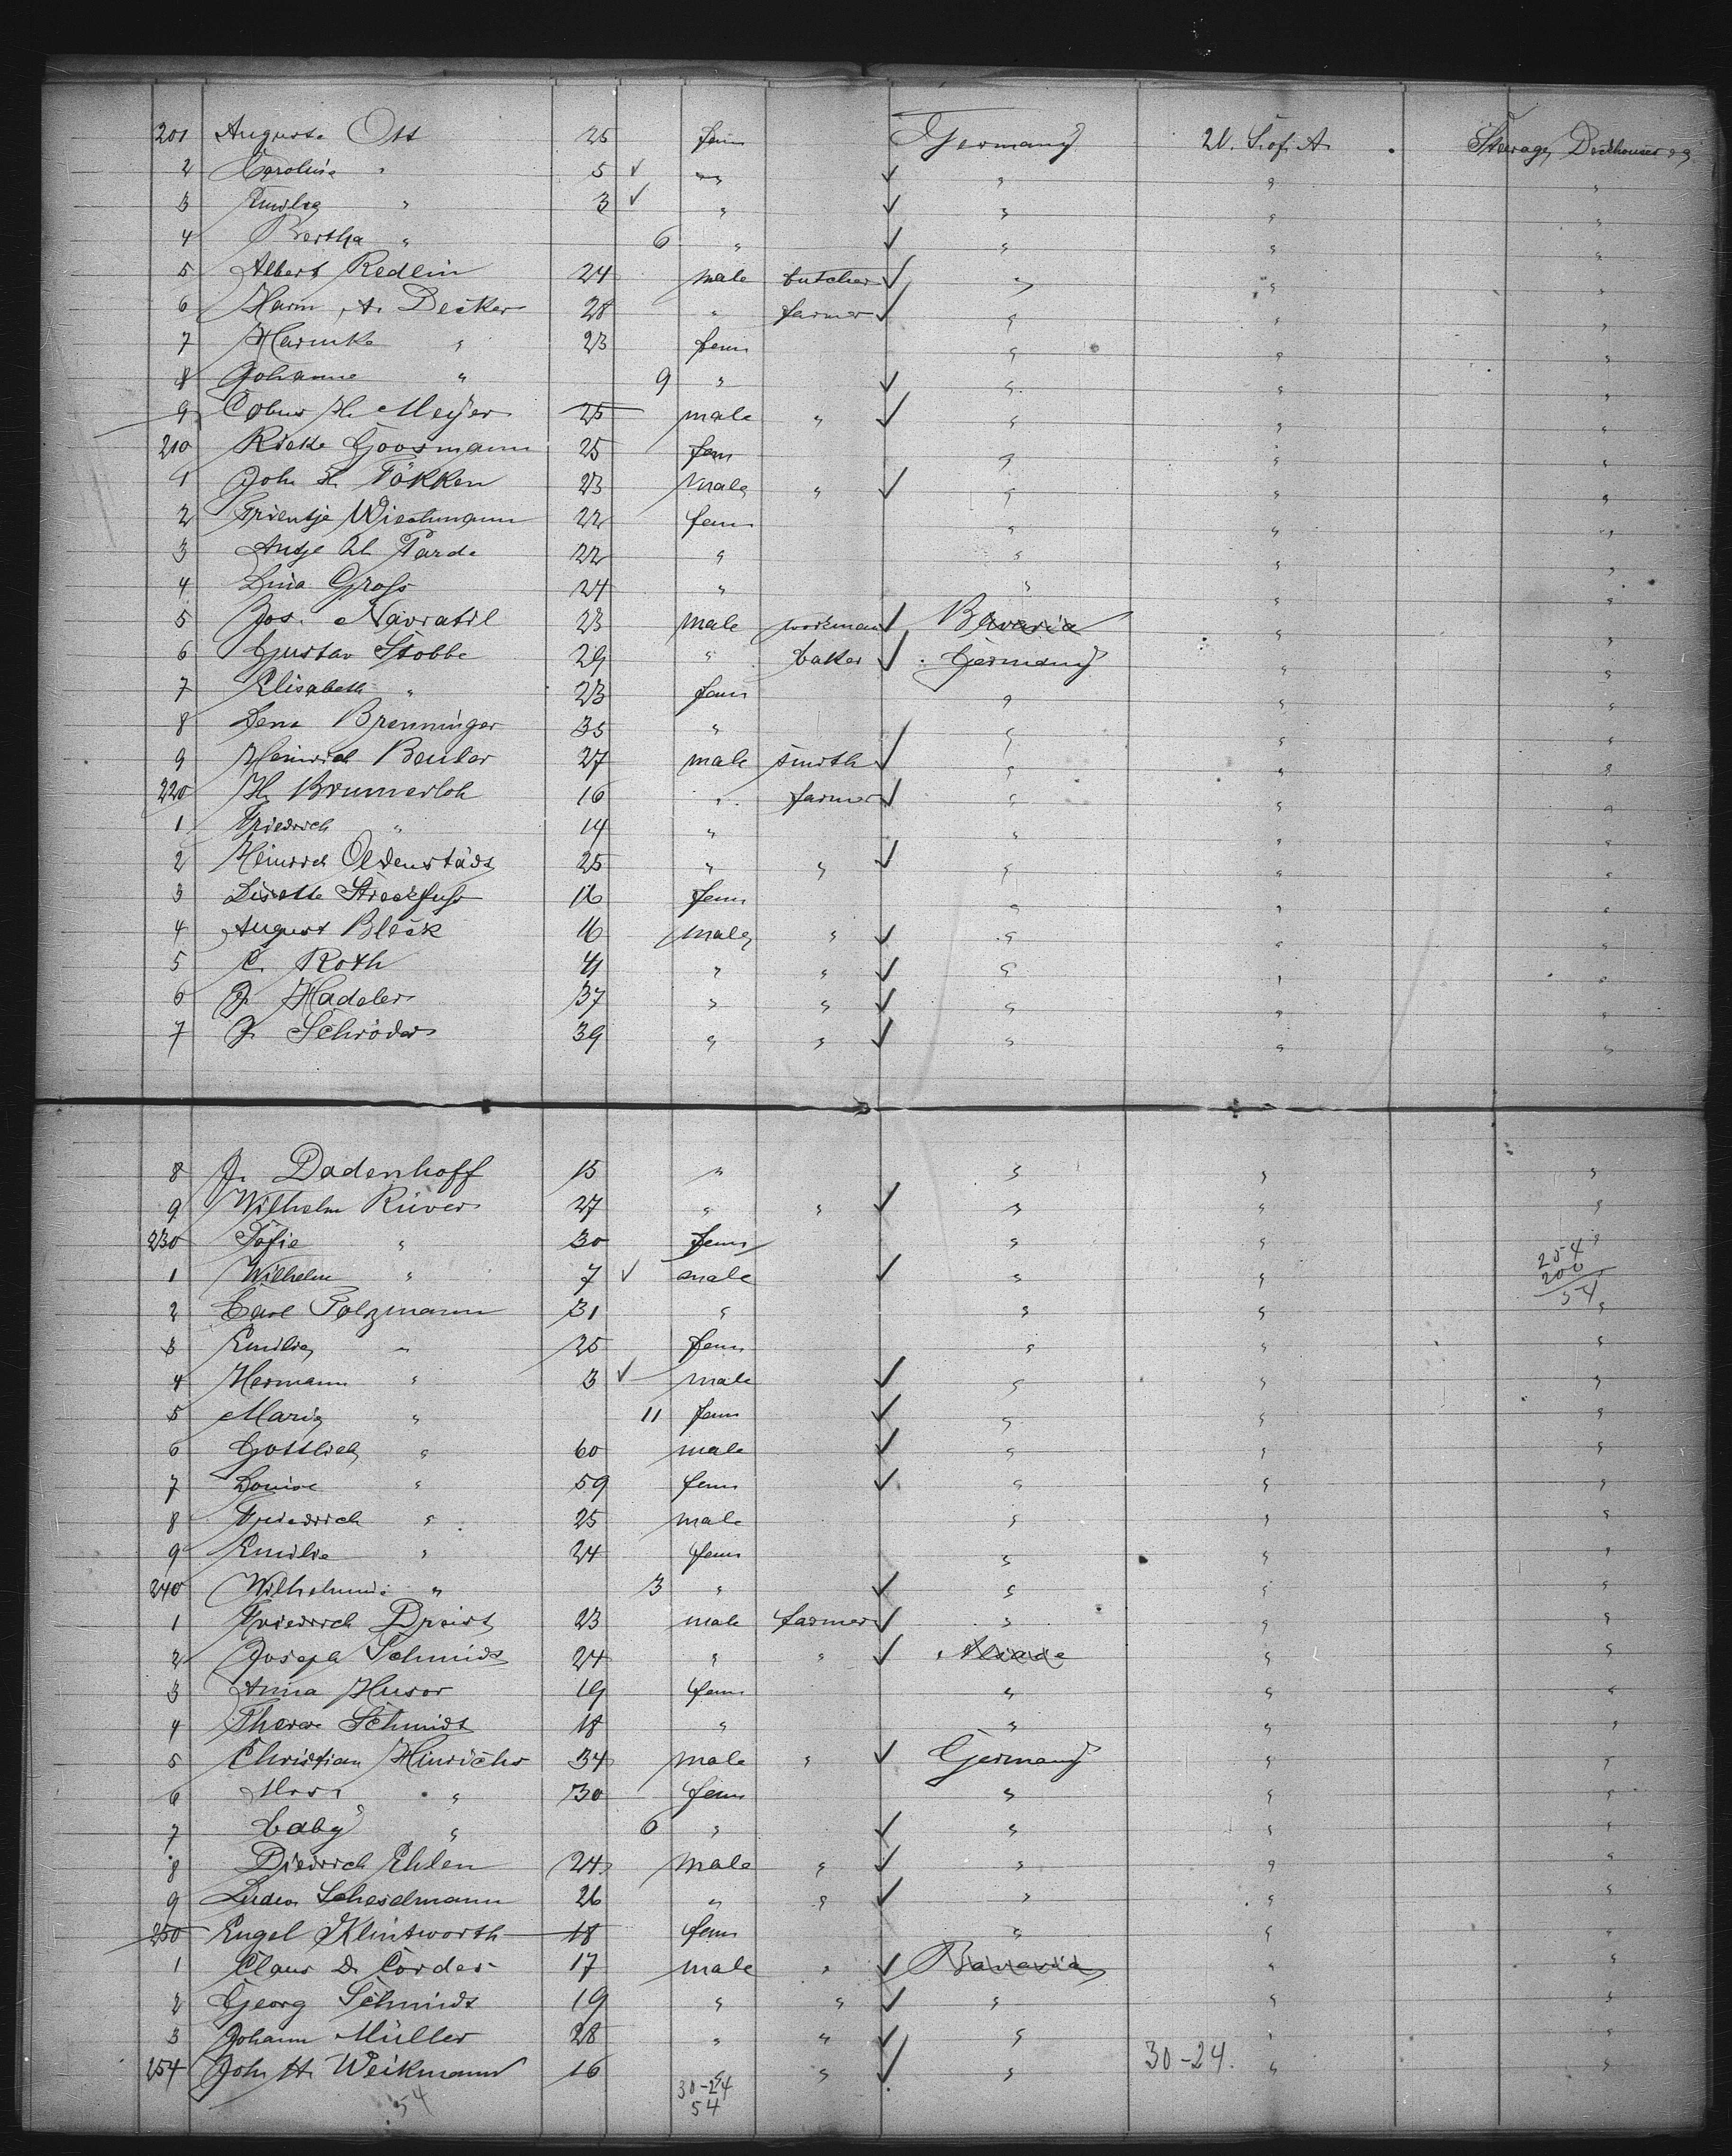 201 Auguste Ott 25 fem Germany U. S. of A. Steerage,
2 Caroline " 5 ✓ " ✓ " " "
3 Emilie " 3 ✓ " ✓ " " "
4 Bertha " 6 " ✓ " " "
5 Albert Redlin 24 male butcher ✓ " " "
6 Harm A. Decker 28 " farmer ✓ " " "
7 Harmke " 23 fem " " "
8 Johanne " 9 " ✓ " " "
9 H. Meyer 25 male " ✓ " " "
210 Rieke Goosmann 25 fem " " "
1 Joh. H. Fökken 23 male " ✓ " " "
2 Trientje Wiechmann 22 fem " " "
3 Antje 22 " " " "
4 Lina Groß 24 " " " "
5 Jos. Navratil 23 male workman ✓ Bavaria " "
6 Gustav Stobbe 29 " baker ✓ Germany " "
7 Elisabeth " 23 fem " " "
8 Lena Brenninger 35 " " " "
9 Heinrich Beuler 27 male smith ✓ " " "
220 H. Brummerloh 16 " farmer ✓ " " "
1 Friedrich " 14 " " " "
2 Heinrich Oldenstädt 25 " " ✓ " " "
3 Lisette Streckfuß 16 fem " " "
4 August Bleck 16 male " ✓ " " "
5 C. Roth 41 " " ✓ " " "
6 J. Hadeler 37 " " ✓ " " "
7 J. Schröder 39 " " ✓ " " "
8 J. Dadenhoff 15 " " " "
9 Wilhelm Rüver 27 " " ✓ " " "
230 Sofie " 30 fem " " "
254
1 Wilhelm " 7 ✓ male ✓ " " "
200
54
2 Carl Polzmann 31 " " " "
3 Emilie " 25 fem " " "
4 Hermann " 3 ✓ male ✓ " " "
5 Marie " 11 fem ✓ " " "
6 Gottlieb " 60 male ✓ " " "
7 Louise " 59 fem ✓ " " "
8 Friedrich " 25 male " " "
9 Emilie " 24 fem " " "
240 Wilhelmine " 3 " ✓ " " "
1 Friedrich Dreist 23 male farmer ✓ " " "
2 Joseph Schmidt 24 " " ✓ " "
3 Anna Huser 19 fem " " "
4 Therese Schmidt 18 " " " "
5 Christian Hinrichs 34 male " ✓ Germany " "
6 Mrs. " 30 fem " " "
7 baby " 6 " ✓ " " "
8 Diedrich Ehlen 24 male " ✓ " " "
9 Ludw. Scheselmann 26 " " ✓ " " "
250 Engel Klintworth 18 fem " " "
1 Claus D. Cordes 17 male " ✓ Bavaria " "
2 Georg Schmidt 19 " " ✓ " " "
3 Johann Müller 28 " " ✓ " " "
254 Joh. H. Weikmann 16 " " ✓ " 30-24. " "
54 30-24
54